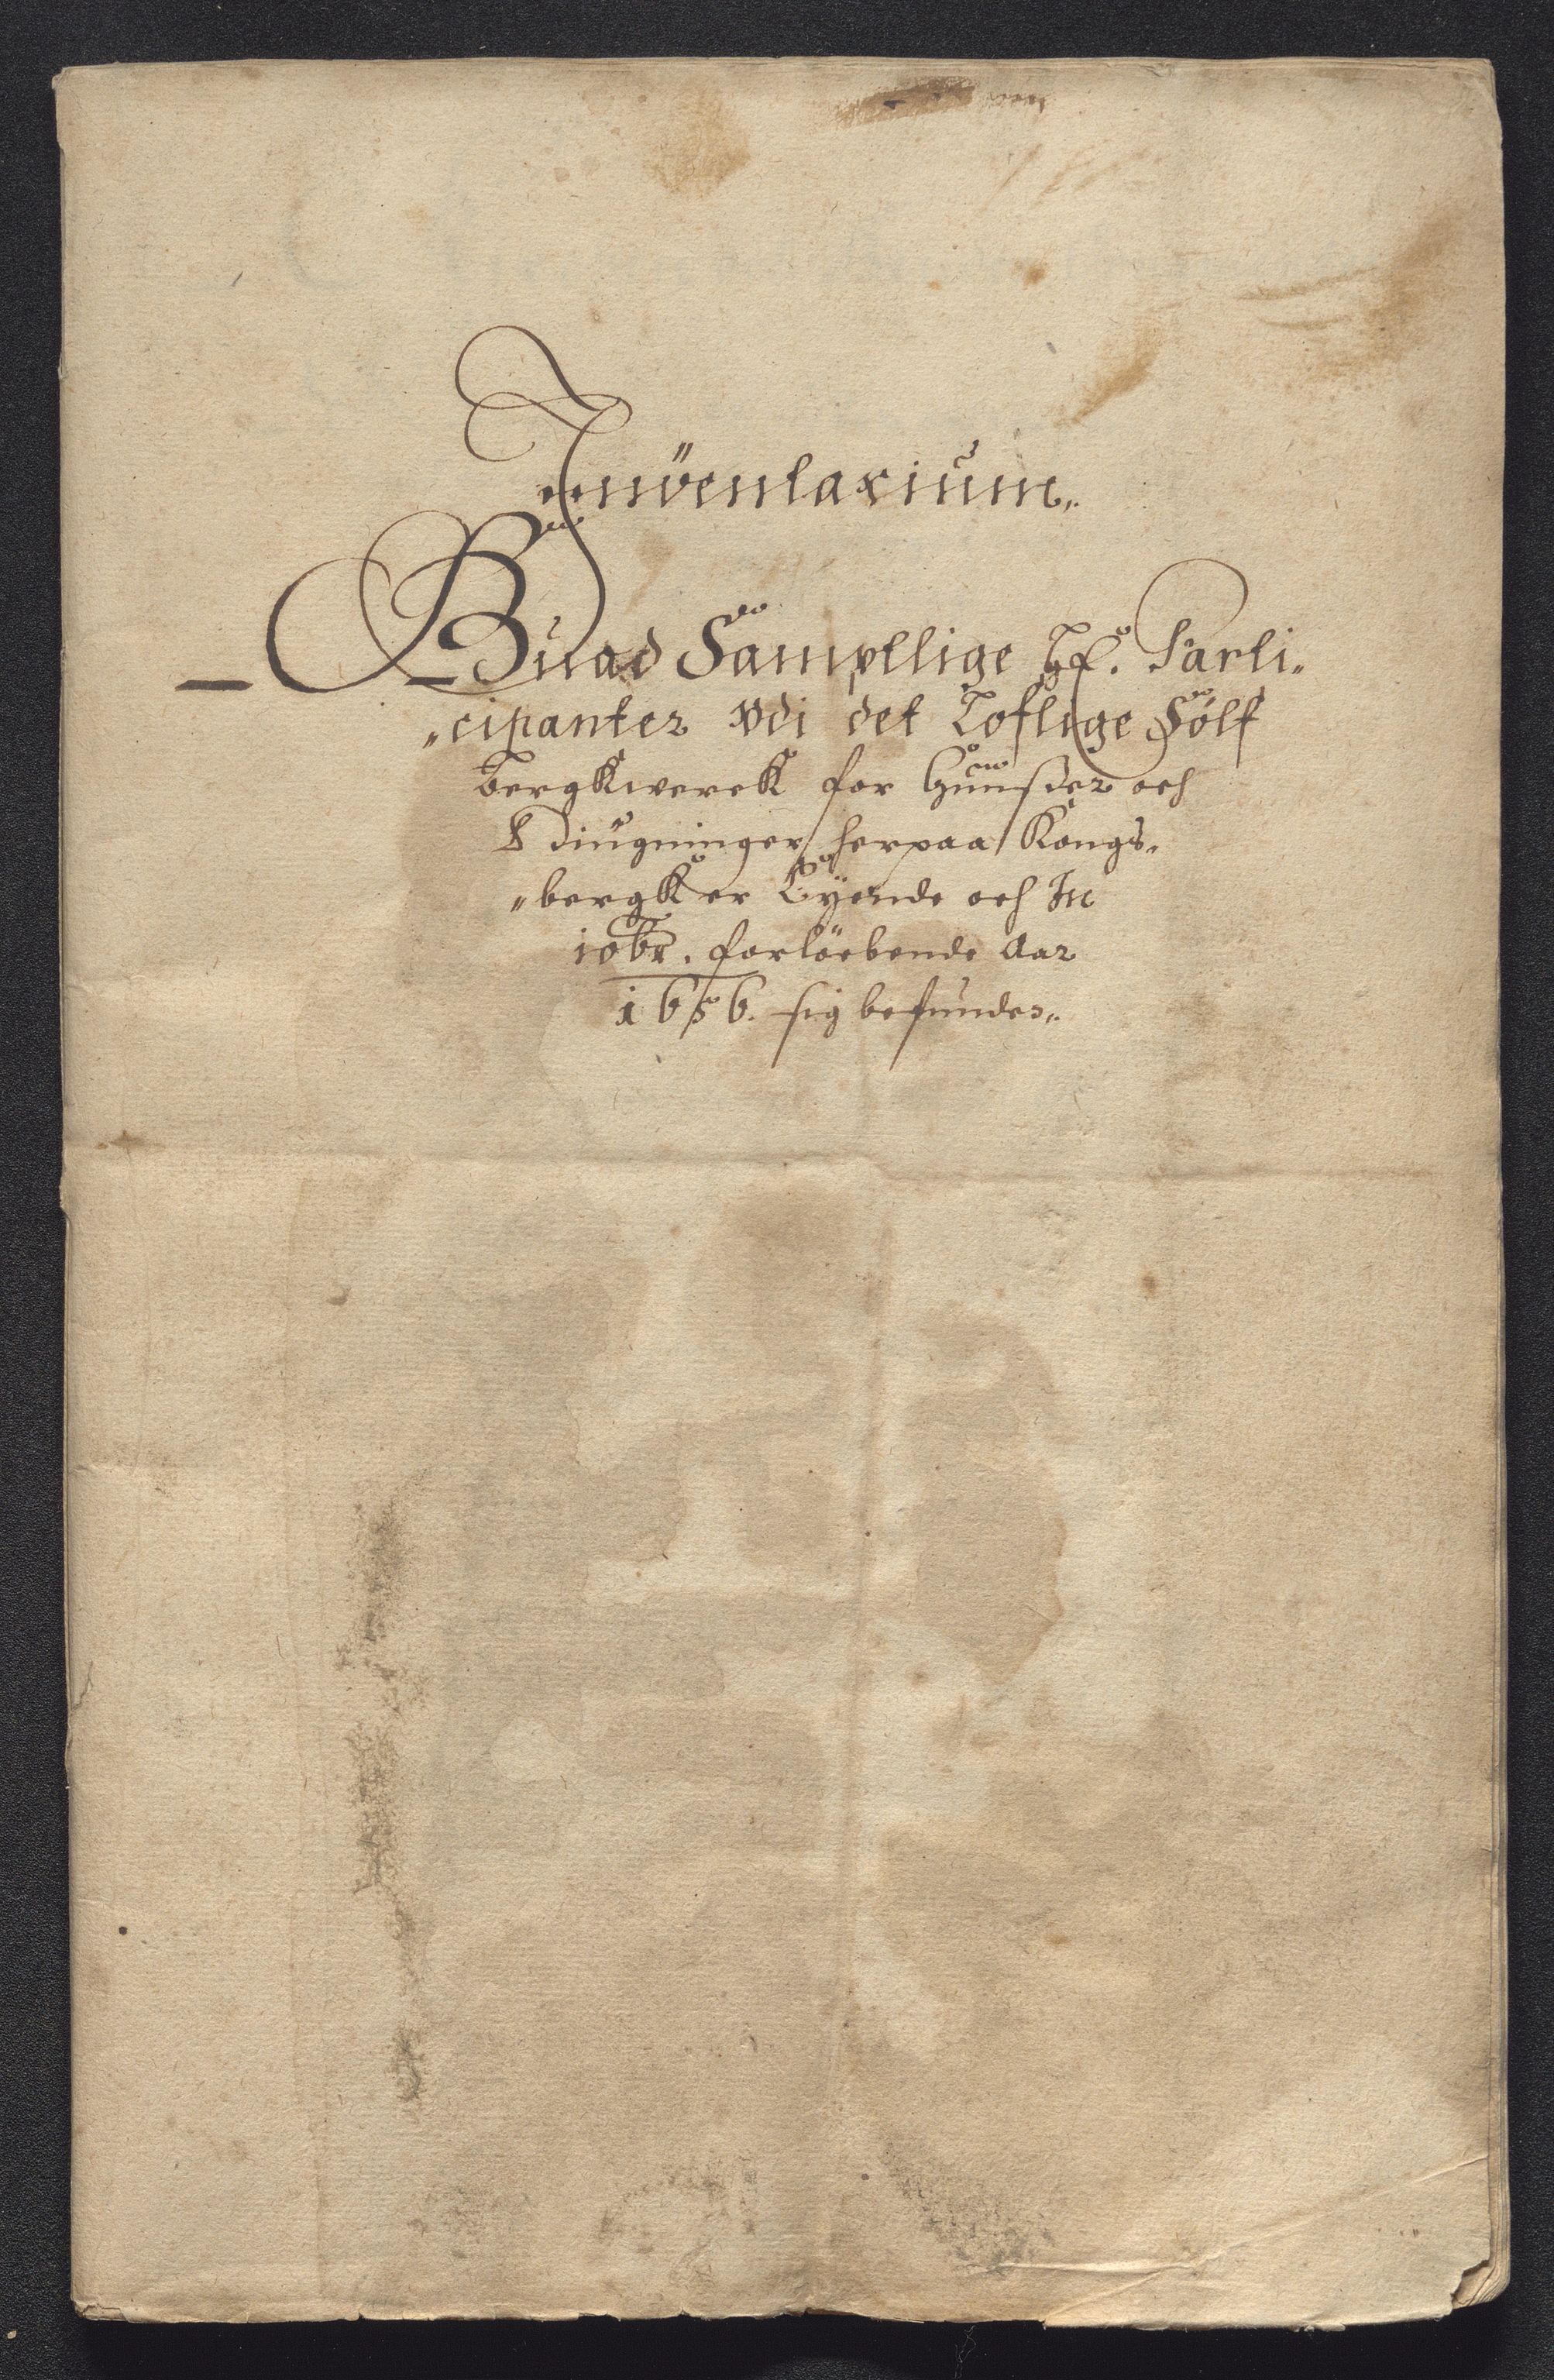 Inventarium„
Huad Sampttlige Hr. Parti„
„cipanter vdi det Loflige Sölf
bergkwerck for huußer och
Bÿgninger herpaa Kongs„
„bergk er Eÿende och In
10br. forlöbende Aar
1656. sig befinder„